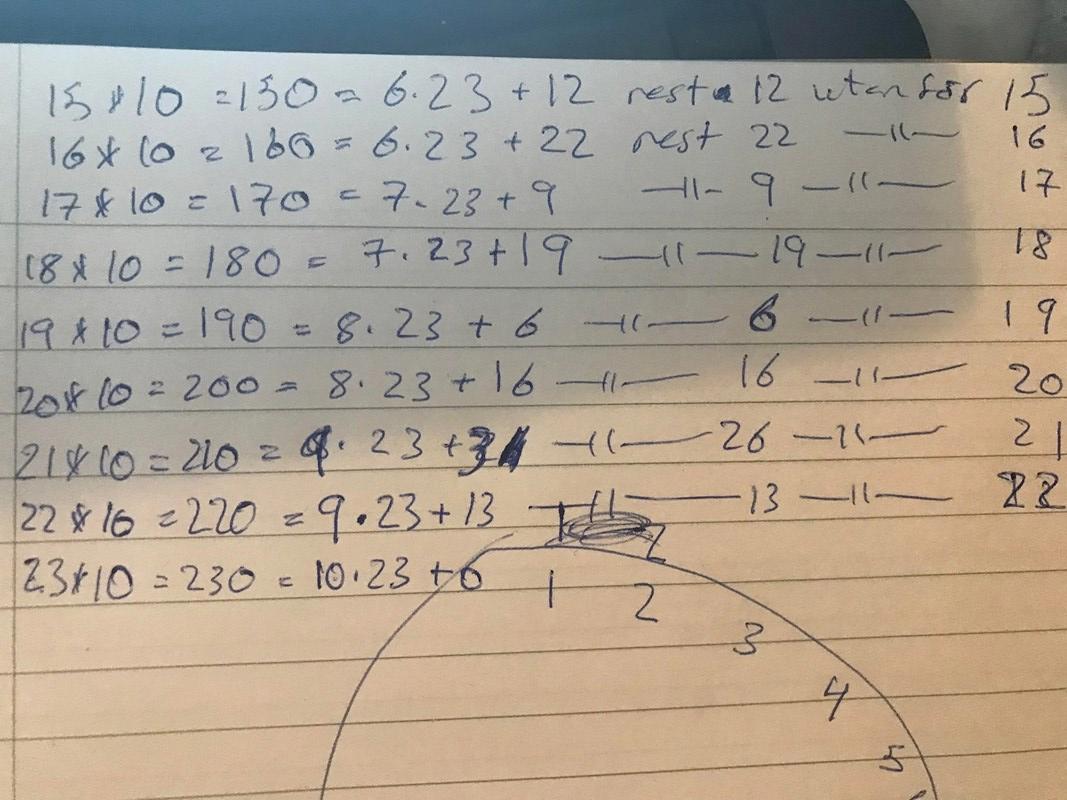 15*10 = 150 = 6·23 + 12 resta 12 utanför 15
16*10 = 160 = 6·23 + 22 rest 22 —||— 16
17*10 = 170 = 7·23 + 9 —||— 9 —||— 17
18*10 = 180 = 7·23 + 19 —||— 19 —||— 18
19*10 = 190 = 8·23 + 6 —||— 6 —||— 19
20*10 = 200 = 8·23 + 16 —||— 16 —||— 20
21*10 = 210 = 9·23 + —||— 26 —||— 21
22*10 = 220 = 9·23 + 13 —||— 13 —||— 22
23*10 = 230 = 10·23 + 0
1 2
3
4
5